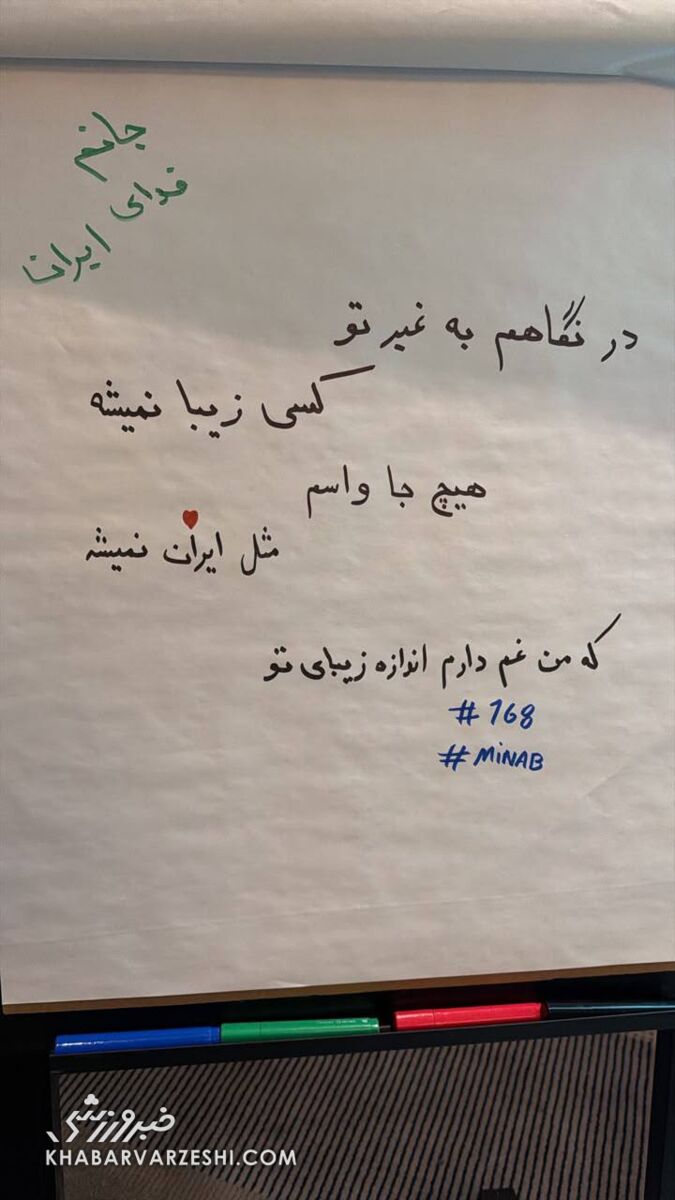 جانم
فدای
ایران
در نگاهم به غیر تو
کسی زیبا نمیشه
هیچ جا واسم
مثل ایران نمیشه
که من غم دارم اندازه زیبای تو
#168
#MiNAB
خبرورزشی
KHABARVARZESHI.COM